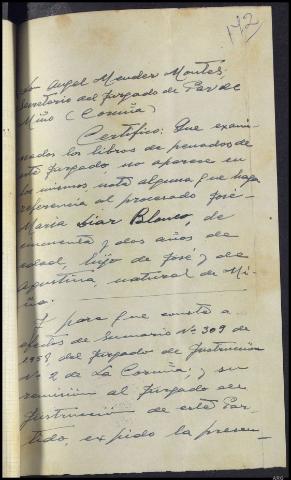 172
Angel Mendez Montes,
Secretario del Juzgado de Paz de
Miño (Coruña)
Certifico: Que exami-
nados los libros de penados de
este Juzgado, no aparece en
los mismos, nota alguna que haga
referencia al procesado José-
María Diaz Blanco, de
cincuenta y dos años de
edad, hijo de José y de
Agustina, natural de Mi-
ño.
Y para que conste a
efectos de Sumario Nº 309 de
1959 del Juzgado de Instrucción
Nº 2 de La Coruña; y su
remisión al Juzgado de
Instrucción de este Par-
tido, expido la presen-
ARG